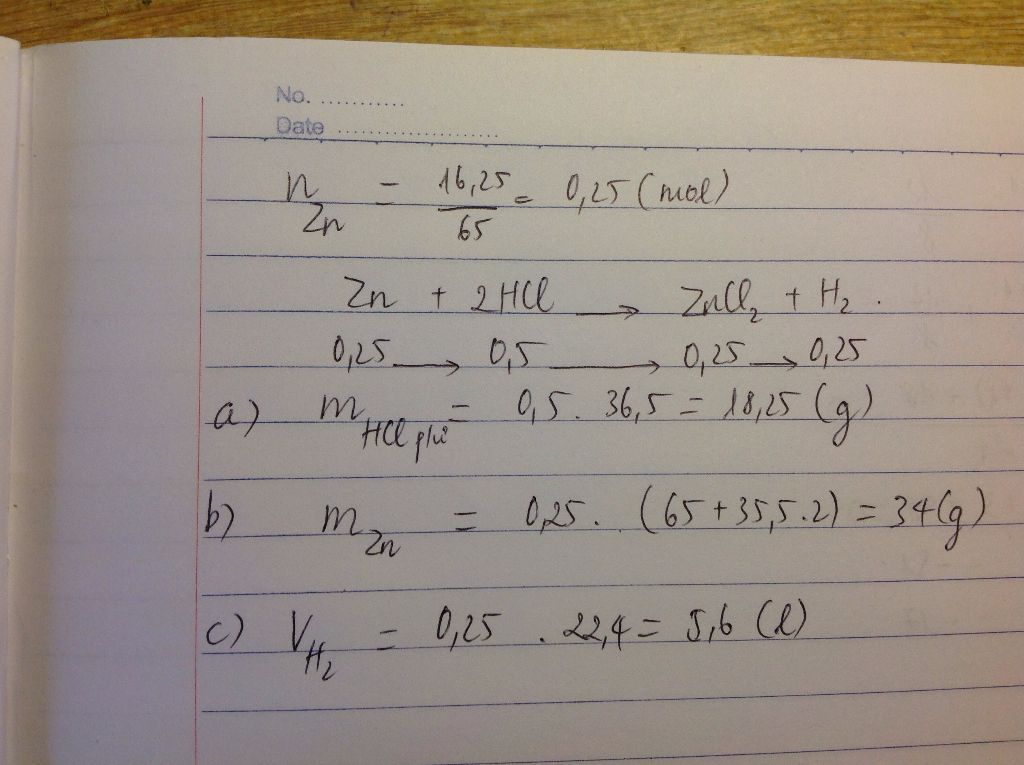 No. ...........
Date .......................
n Zn = 16,25 / 65 = 0,25 (mol)
Zn + 2HCl → ZnCl₂ + H₂ .
0,25 → 0,5 → 0,25 → 0,25
a) m HCl pứ = 0,5 . 36,5 = 18,25 (g)
b) m Zn = 0,25 . (65 + 35,5 . 2) = 34 (g)
c) V H₂ = 0,25 . 22,4 = 5,6 (l)